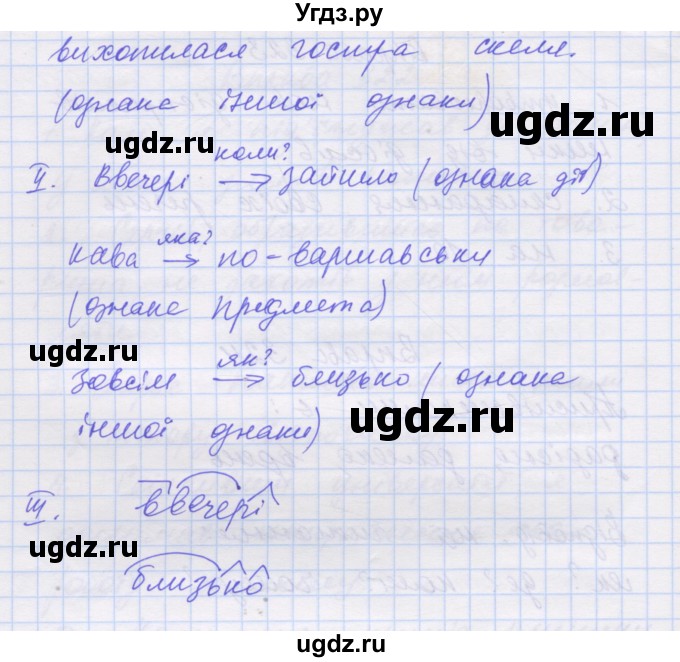 Угдз.ру
вихопилася гостра скеля.
(ознака іншої ознаки)
ugdz.ru
ugdz.ru
коли?
II. Ввечері → зайшло (ознака дії)
яка?
кава → по-варшавськи
(ознака предмета)
ugdz.ru
як?
Зовсім → близько (ознака
іншої ознаки)
ugdz.ru
III. ввечері
ugdz.ru
близько
ugdz.ru